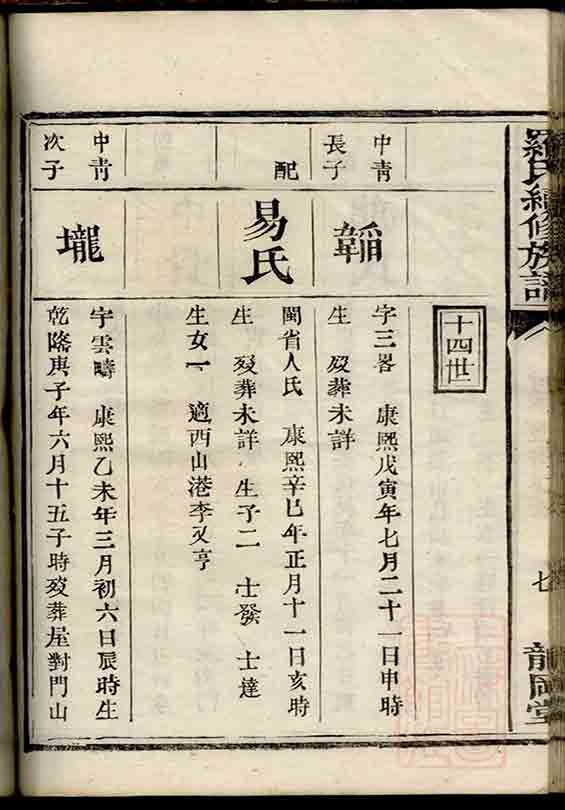 羅氏續修族譜
七
龍岡堂
十四世
中青
長子
韜
字三畧 康熙戊寅年七月二十一日申時
生 歿葬未詳
配
易氏
閩省人氏 康熙辛巳年正月十一日亥時
生 歿葬未詳 生子二 士發 士達
生女一 適西山港李又亨
中青
次子
壠
字雲疇 康熙乙未年三月初六日辰時生
乾隆庚子年六月十五子時歿葬屋對門山